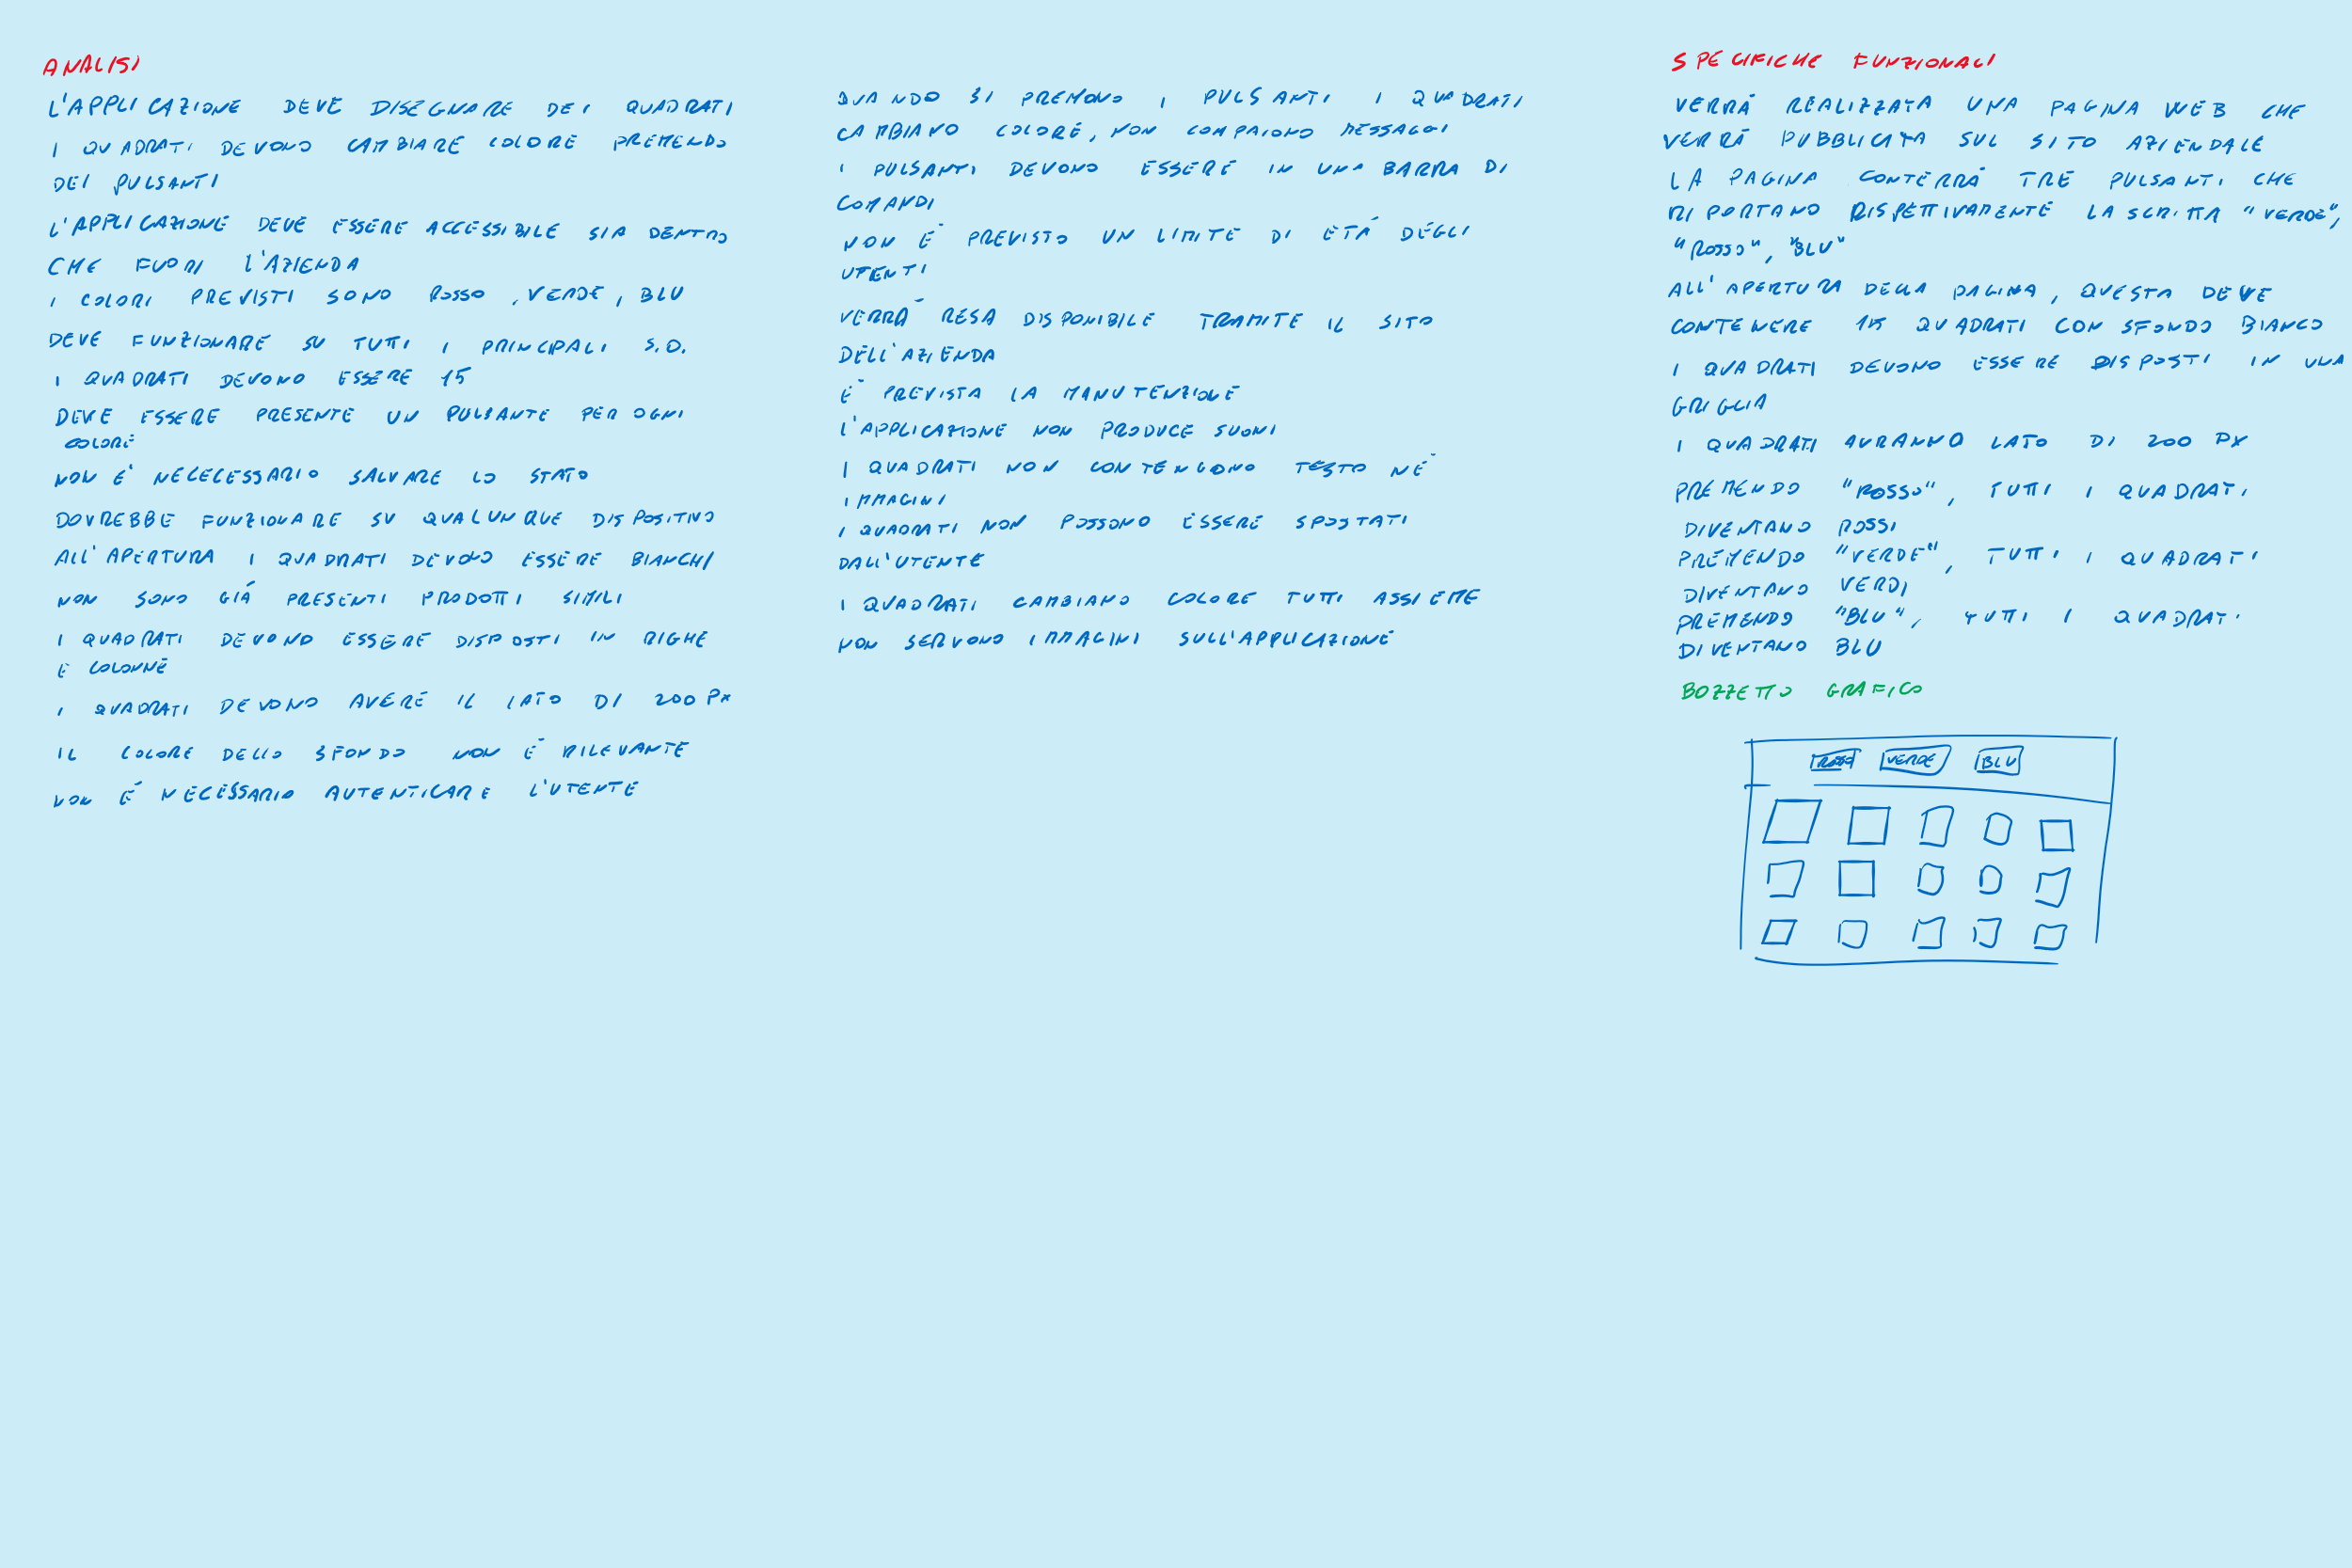 ANALISI
L'APPLICAZIONE DEVE DISEGNARE DEI QUADRATI
I QUADRATI DEVONO CAMBIARE COLORE PREMENDO
DEI PULSANTI
L'APPLICAZIONE DEVE ESSERE ACCESSIBILE SIA DENTRO
CHE FUORI L'AZIENDA
I COLORI PREVISTI SONO ROSSO, VERDE, BLU
DEVE FUNZIONARE SU TUTTI I PRINCIPALI S.O.
I QUADRATI DEVONO ESSERE 15
DEVE ESSERE PRESENTE UN PULSANTE PER OGNI
COLORE
NON E' NECECESSARIO SALVARE LO STATO
DOVREBBE FUNZIONARE SU QUALUNQUE DISPOSITIVO
ALL'APERTURA I QUADRATI DEVONO ESSERE BIANCHI
NON SONO GIÁ PRESENTI PRODOTTI SIMILI
I QUADRATI DEVONO ESSERE DISPOSTI IN RIGHE
E COLONNE
I QUADRATI DEVONO AVERE IL LATO DI 200 PX
IL COLORE DELLO SFONDO NON É RILEVANTE
NON É NECESSARIO AUTENTICARE L'UTENTE
QUANDO SI PREMONO I PULSANTI I QUADRATI
CAMBIANO COLORE, NON COMPAIONO MESSAGGI
I PULSANTI DEVONO ESSERE IN UNA BARRA DI
COMANDI
NON É PREVISTO UN LIMITE DI ETÁ DEGLI
UTENTI
VERRÁ RESA DISPONIBILE TRAMITE IL SITO
DELL'AZIENDA
É PREVISTA LA MANUTENZIONE
L'APPLICAZIONE NON PRODUCE SUONI
I QUADRATI NON CONTENGONO TESTO NÉ
IMMAGINI
I QUADRATI NON POSSONO ESSERE SPOSTATI
DALL'UTENTE
I QUADRATI CAMBIANO COLORE TUTTI ASSIEME
NON SERVONO IMMAGINI SULL'APPLICAZIONE
SPECIFICHE FUNZIONALI
VERRÁ REALIZZATA UNA PAGINA WEB CHE
VERRÁ PUBBLICATA SUL SITO AZIENDALE
LA PAGINA CONTERRÁ TRE PULSANTI CHE
RIPORTANO RISPETTIVAMENTE LA SCRITTA "VERDE",
"ROSSO", "BLU"
ALL'APERTURA DELLA PAGINA, QUESTA DEVE
CONTENERE 15 QUADRATI CON SFONDO BIANCO
I QUADRATI DEVONO ESSERE DISPOSTI IN UNA
GRIGLIA
I QUADRATI AVRANNO LATO DI 200 PX
PREMENDO "ROSSO", TUTTI I QUADRATI
DIVENTANO ROSSI
PREMENDO "VERDE", TUTTI I QUADRATI
DIVENTANO VERDI
PREMENDO "BLU", TUTTI I QUADRATI
DIVENTANO BLU
BOZZETTO GRAFICO
ROSSO VERDE BLU